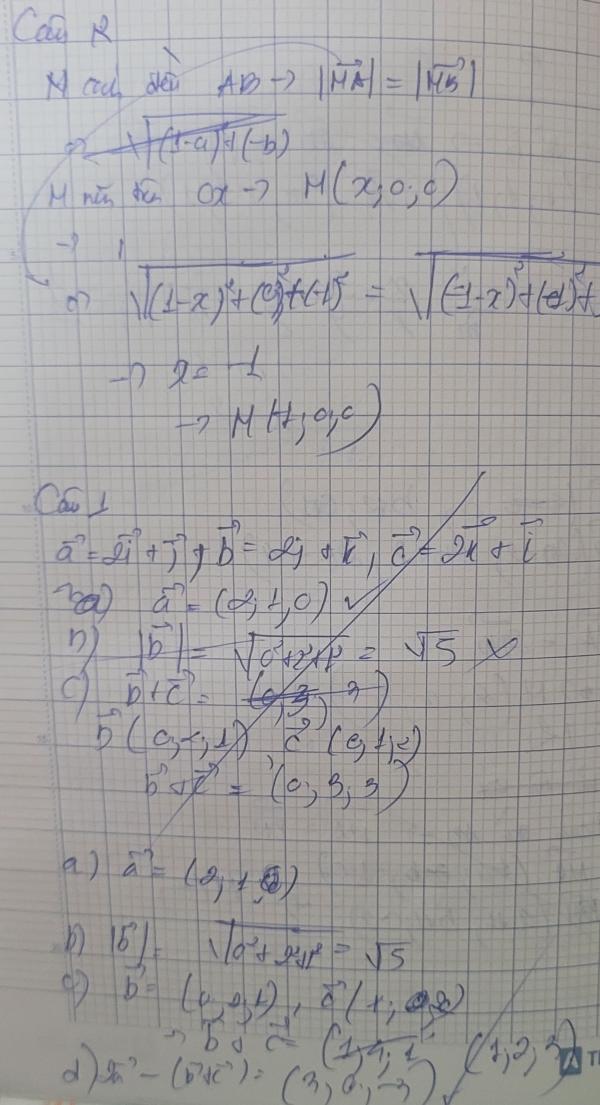 Câu 2
M cách đều AB → |MA| = |MB|
√(1-a)²+(-b)
M nằm trên Ox → M(x,0,0)
√(1-x)²+(0)²+(-1)² = √(-1-x)²+(-1)²+
→ x = -1
→ M(-1,0,0)
Câu 1
a⃗ = 2i⃗ + j⃗, b⃗ = 2j + k⃗, c⃗ = 2k⃗ + i⃗
a) a⃗ = (2,1,0) ✓
b) |b⃗| = √0²+2²+1² = √5
c) b⃗+c⃗ =
b⃗(0,2,1) c⃗(0,1,2)
b⃗+c⃗ = (0,3,3)
a) a⃗ = (2,1,0)
b) |b⃗| = √0²+2²+1² = √5
c) b⃗ = (0,2,1), c⃗(1,0,2)
→ b⃗ + c⃗ = (1, (1,2,3)
d) 2a⃗ - (b⃗+c⃗) = (3,0,-3)